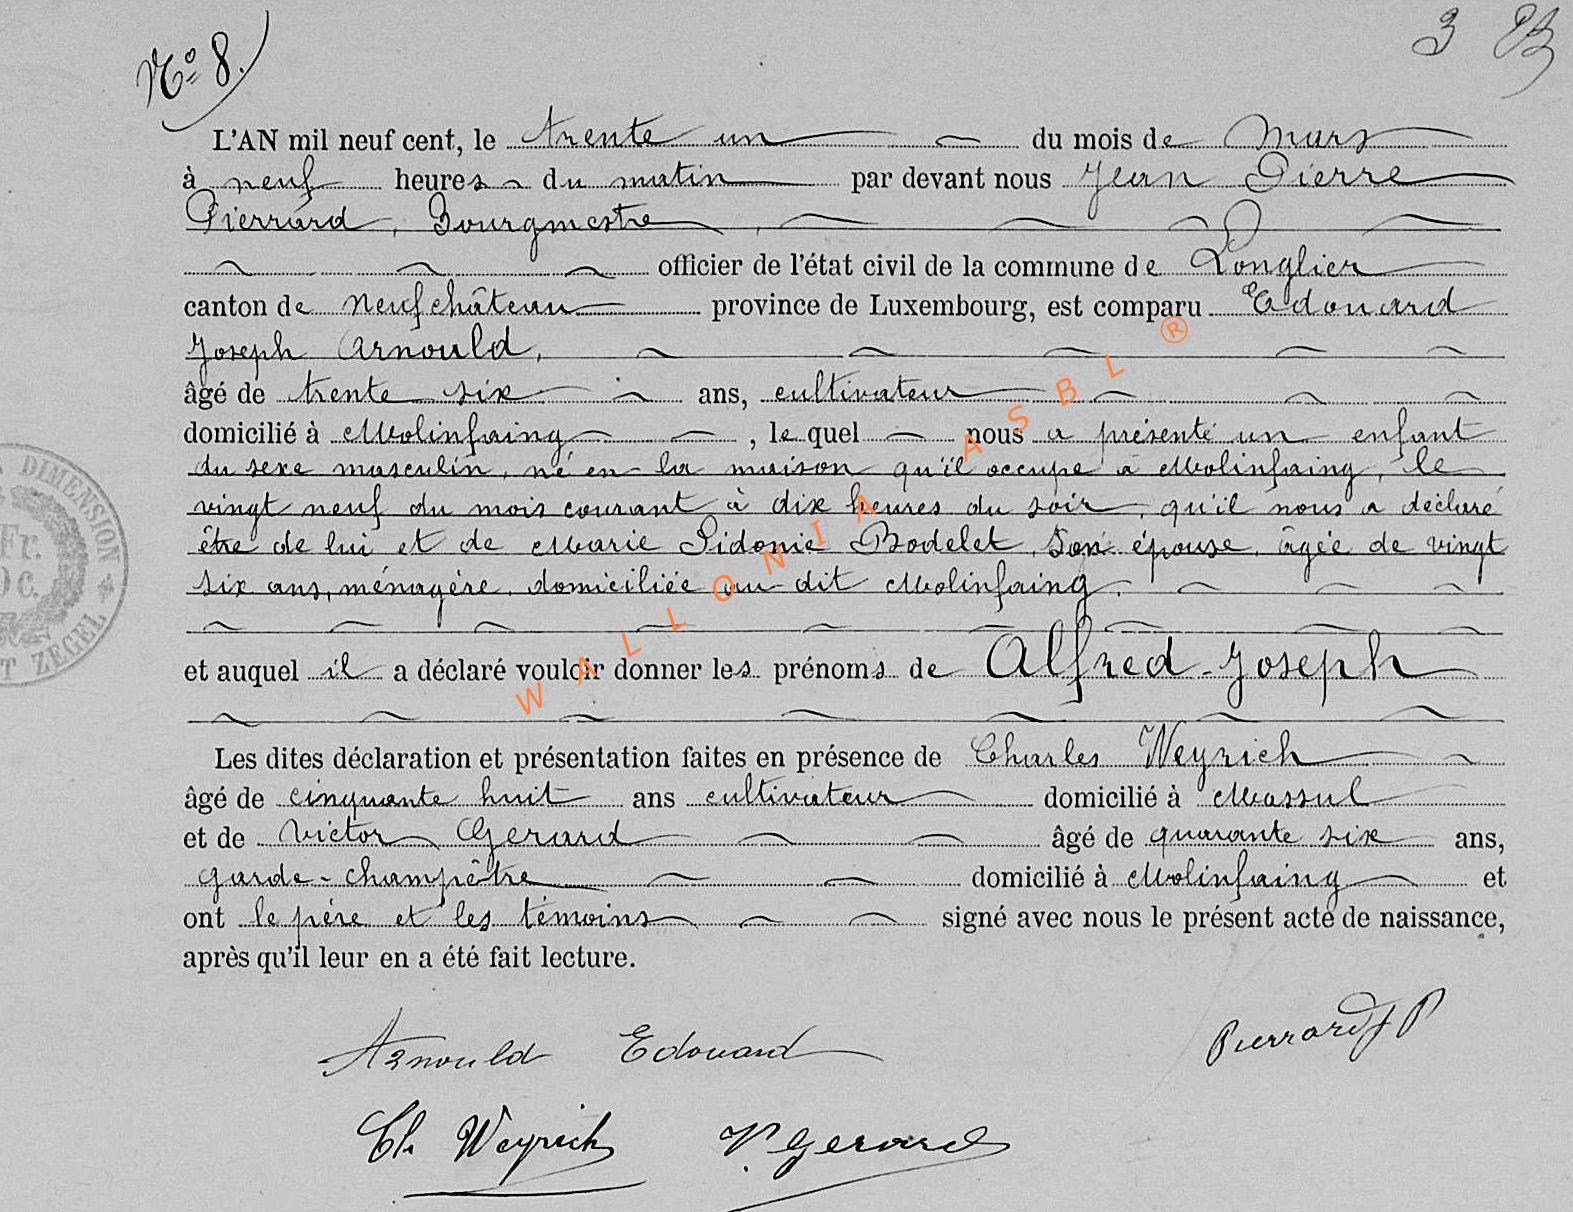 3 B
N° 8.
L'AN mil neuf cent, le trente un du mois de mars
à neuf heures du matin par devant nous Jean Pierre
Pierrard, Bourgmestre,
officier de l'état civil de la commune de Longlier
canton de Neufchâteau province de Luxembourg, est comparu Edouard
Joseph Arnould,
âgé de trente six ans, cultivateur
domicilié à Molinfaing, le quel nous a présenté un enfant
du sexe masculin, né en la maison qu'il occupe à Molinfaing, le
vingt neuf du mois courant, à dix heures du soir, qu'il nous a déclaré
être de lui et de Marie Sidonie Bodelet, son épouse, âgée de vingt
six ans, ménagère, domiciliée au dit Molinfaing.
et auquel il a déclaré vouloir donner les prénoms de Alfred-Joseph
Les dites déclaration et présentation faites en présence de Charles Weyrich
âgé de cinquante huit ans cultivateur domicilié à Massul
et de Victor Gerard âgé de quarante six ans,
garde-champêtre domicilié à Molinfaing et
ont le père et les témoins signé avec nous le présent acte de naissance,
après qu'il leur en a été fait lecture.
Arnould Edouard Pierrard J P
Ch Weyrich V. Gerard
DIMENSION
Fr.
0c.
T ZEGEL
WALLONIA ASBL ®